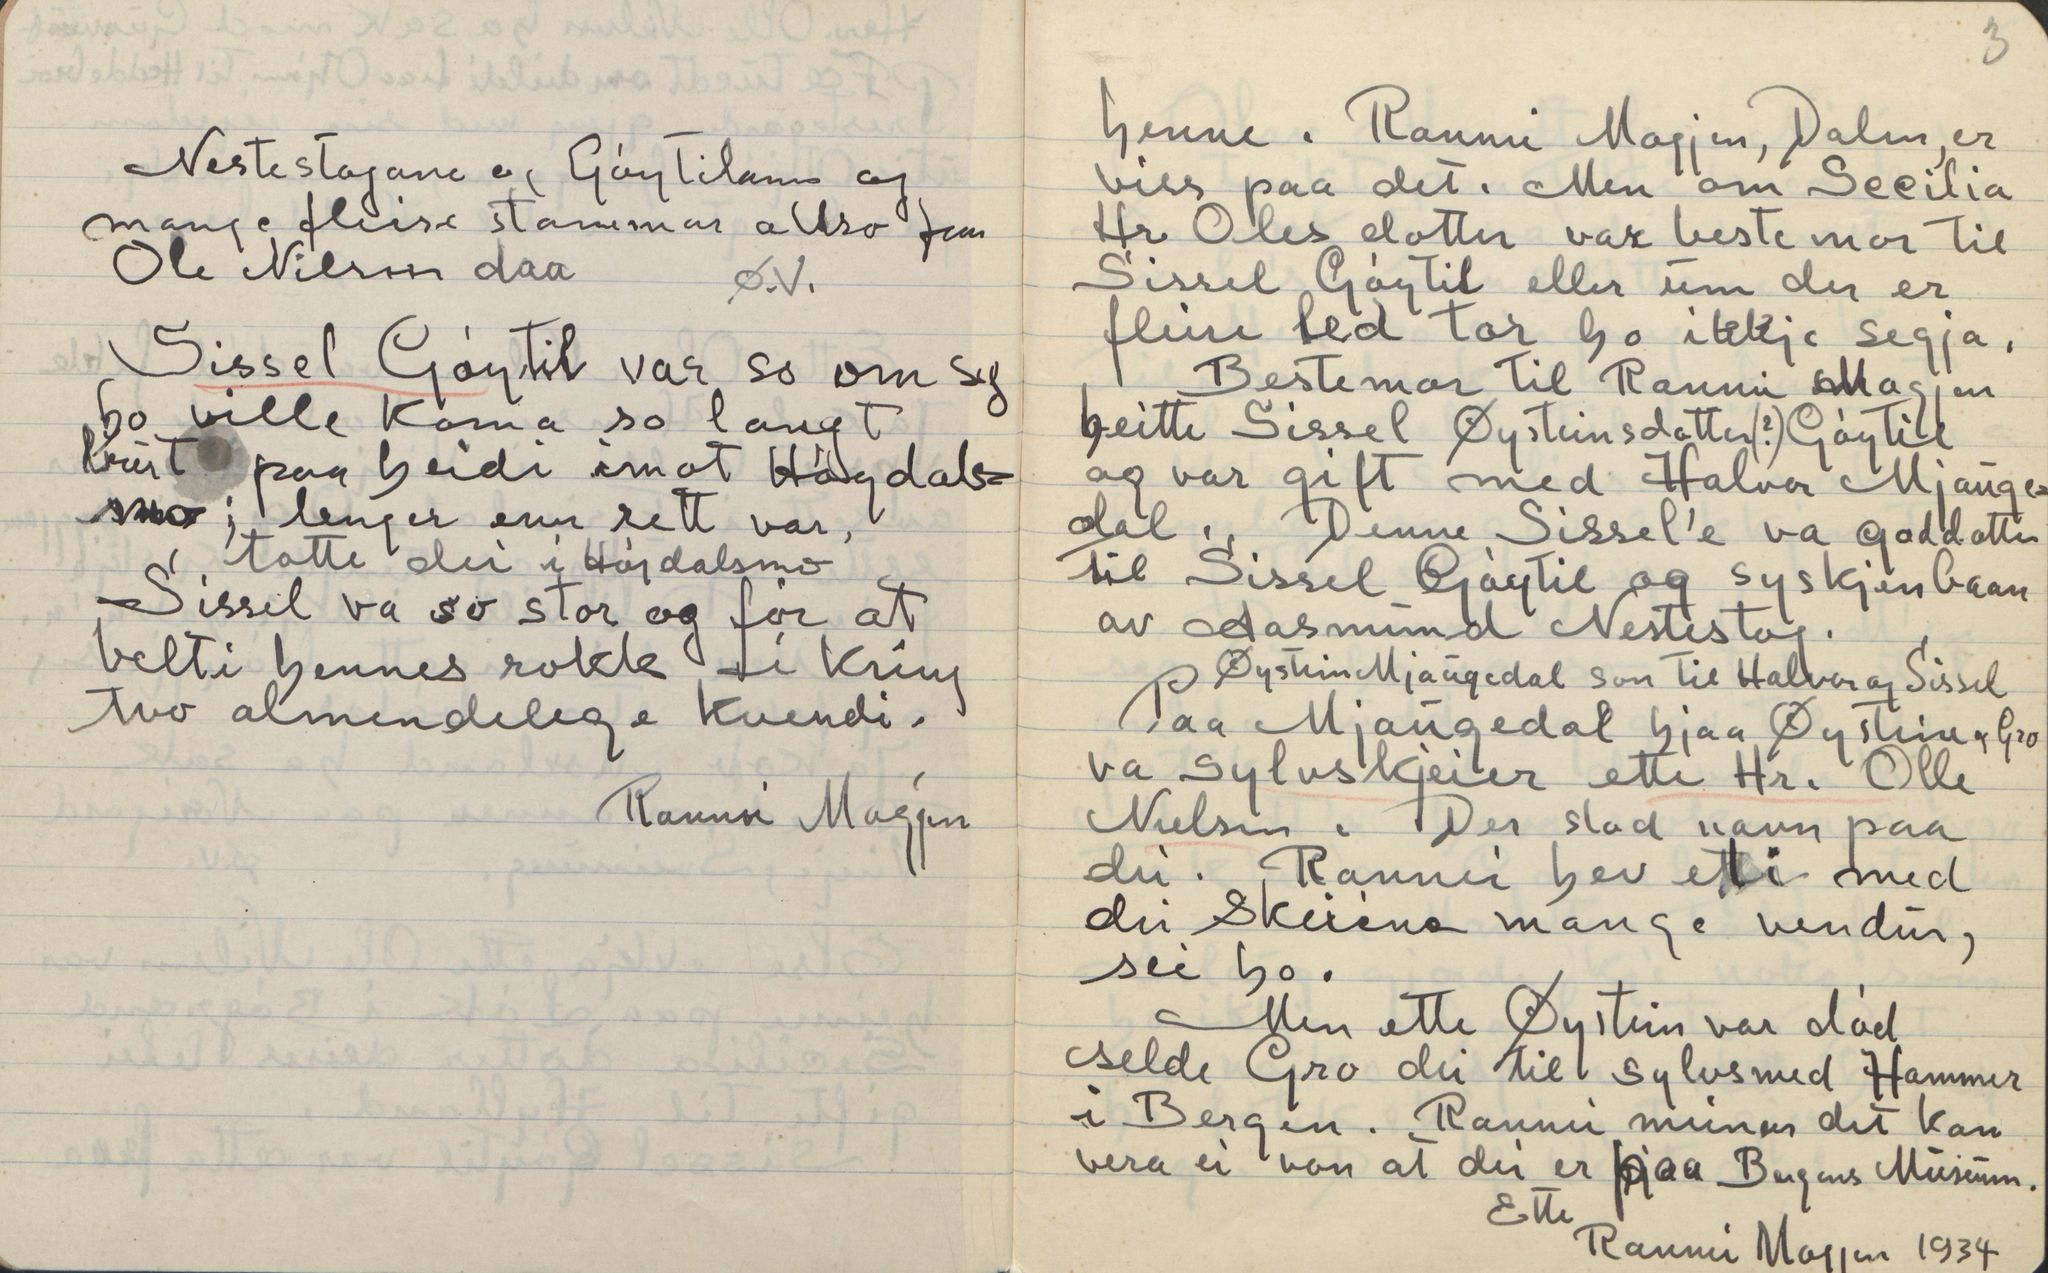 Nestestogane og Göytilane og
mange fleire stammar altso fraa
Ole Nilson daa Ø.V.
Sissel Göytil var so om seg
ho ville koma so langt
burt paa heidi imot Högdals=
mo; lenger enn rett var,
totte dei i Högdalsmo
Sissel va so stor og för at
belti hennes rokk i kring
tvo almendelege kvendi.
Rannei Magjen
3
henne. Rannei Magjen, Dalen, er
viss paa det. Men om Secilia
Hr Oles dotter var bestemor til
Sissel Göytil eller um der er
fleire led tor ho ikkje segja.
Bestemor til Rannei Magjen
heitte Sissel Øysteinsdotter(?) Göytil
og var gift med Halvor Mjaùge=
dal. Denne Sissel'e va goddotter
til Sissel Göytil og syskjenbaan
av Aasmùnd Nestestog.
Øystein Mjaùgedal son til Halvor og Sissel
Paa Mjaùgedal hjaa Øystein og Gro
va sylvskjeier ette Hr. Olle
Nielsen. Der stod navn paa
dei. Rannei hev etti med
dei skeiene mange vendùr,
sei ho.
Men ette Øystein var död
selde Gro dei til sylvsmed Hammer
i Bergen. Rannei meiner det kan
vera ei von at dei er hjaa Bergens Mùseùm.
Ette
Rannei Magjen 1934